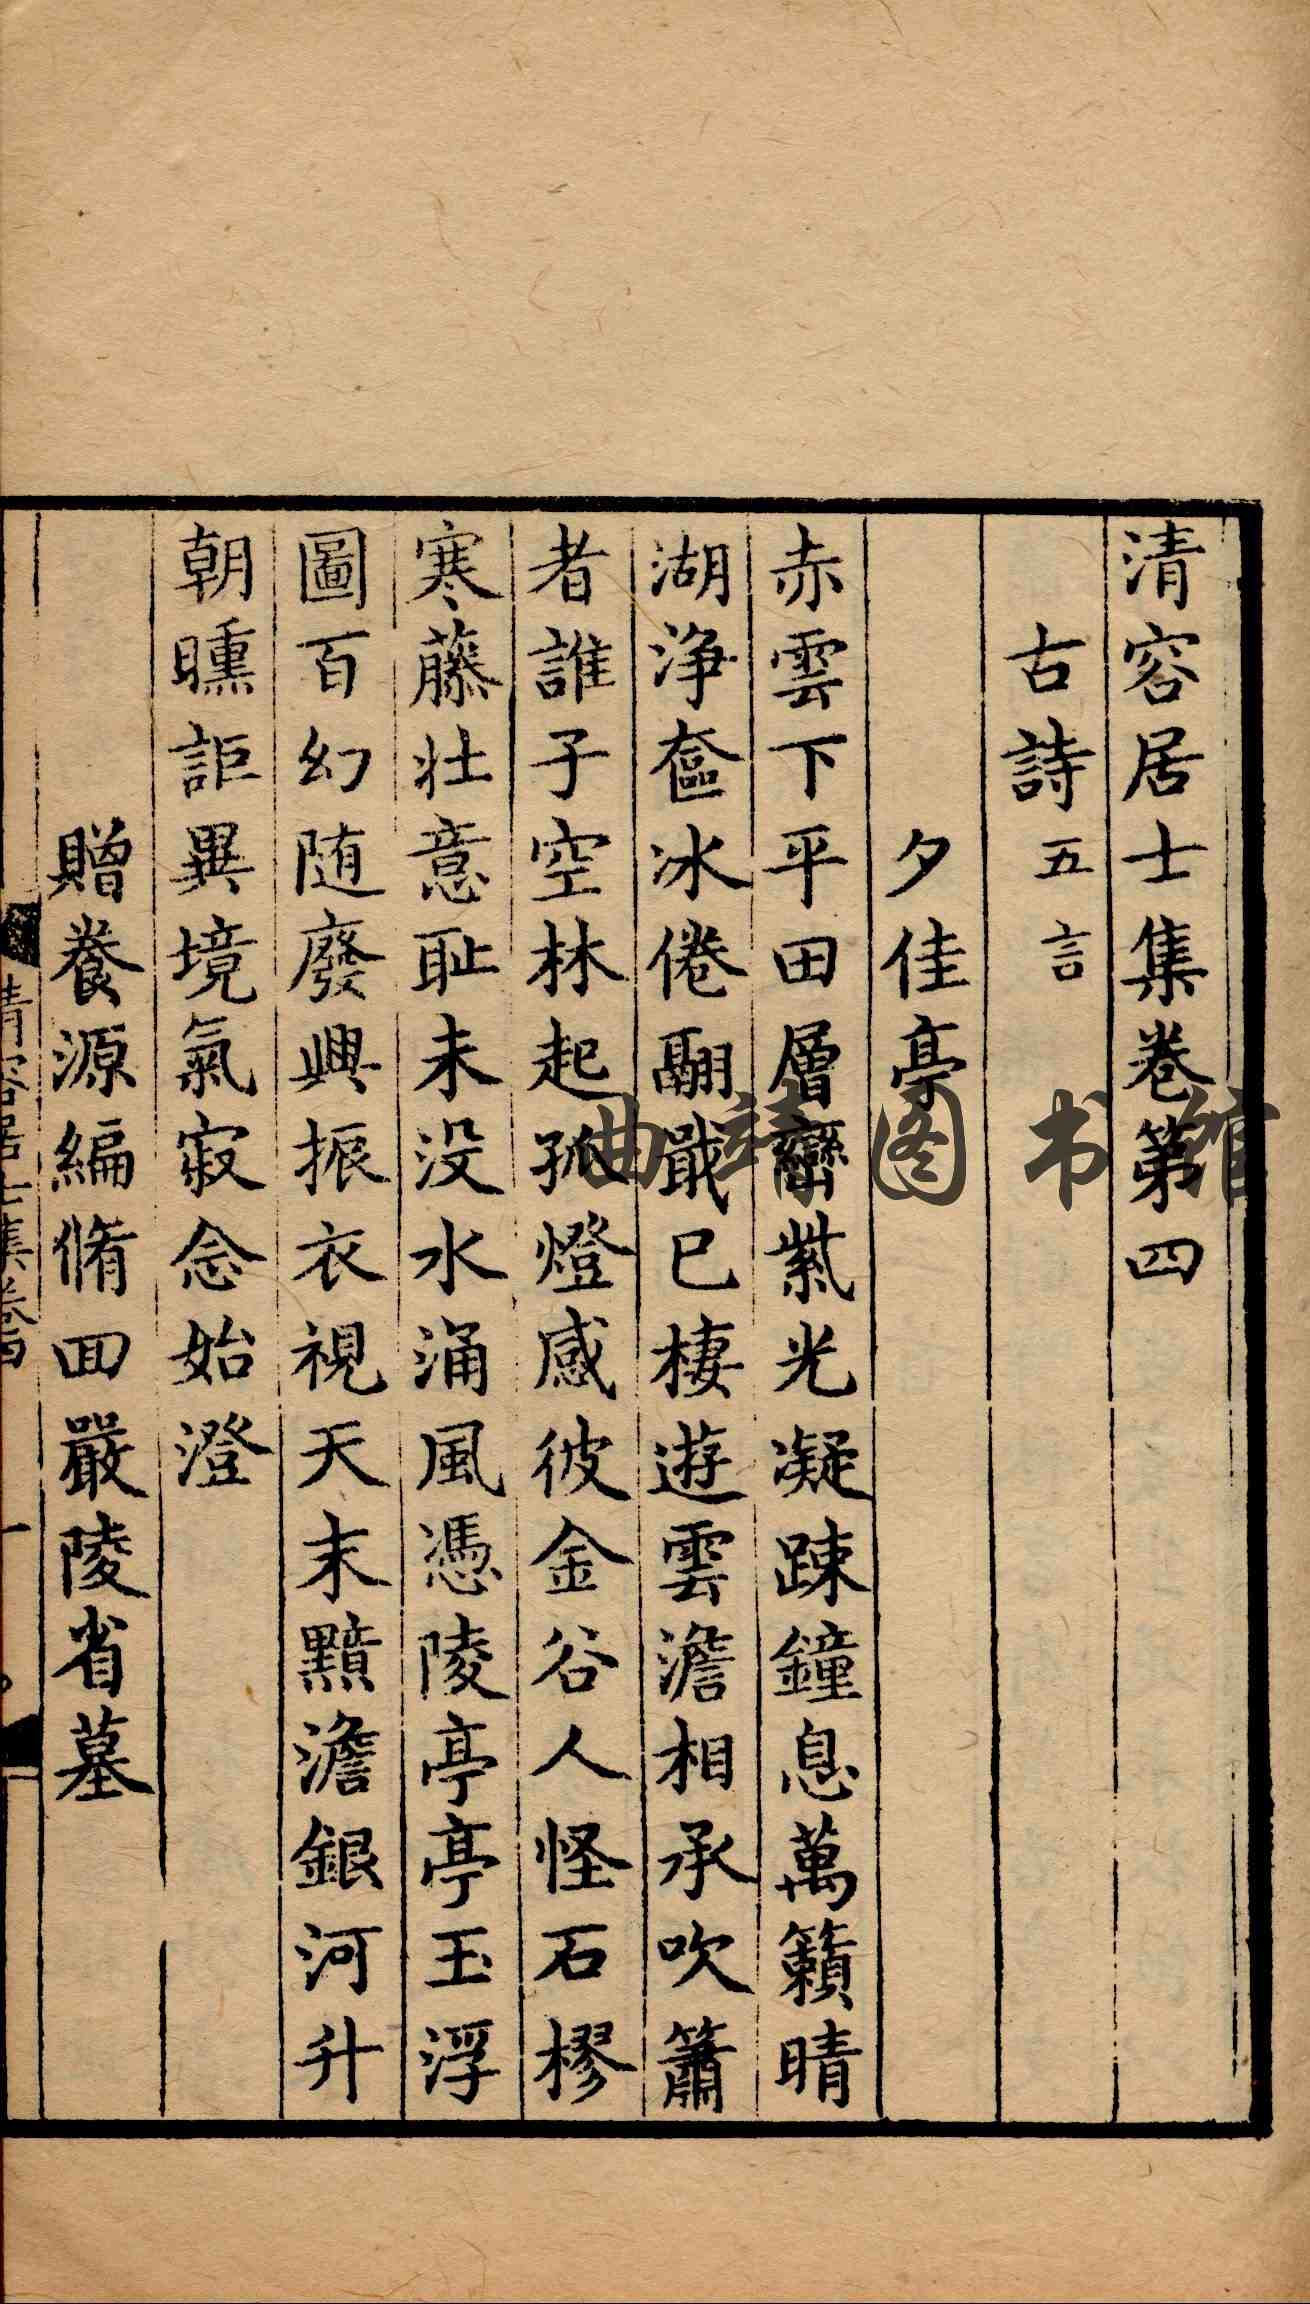 清容居士集卷第四
古詩五言
夕佳亭
赤雲下平田層巒紫光凝踈鐘息萬籟晴
湖浄奩冰倦翮戢已棲遊雲澹相承吹簫
者誰子空林起孤燈感彼金谷人怪石樛
寒藤壮意耻未没水涌風憑陵亭亭玉浮
圖百幻随廢興振衣視天末黯澹銀河升
朝曛詎異境氣寂念始澄
贈養源編脩囬嚴陵省墓
清容居士集卷四
一
图书馆